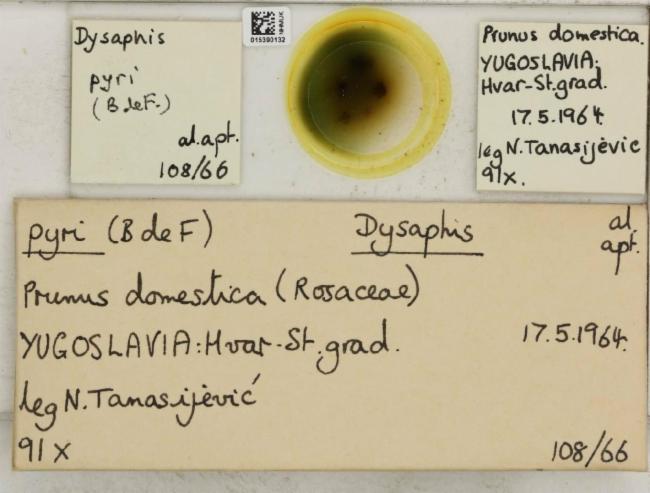 Dysaphis
pyri
(B deF.)
al.apt.
108/66
NHMUK
015390132
Prunus domestica.
YUGOSLAVIA:
Hvar-St.grad.
17.5.1964
leg N.Tanasijėvic
91x.
pyri (B de F) Dysaphis al.
apt.
Prunus domestica (Rosaceae)
YUGOSLAVIA: Hvar-St.grad. 17.5.1964.
leg N.Tanasijėvić
91 x 108/66